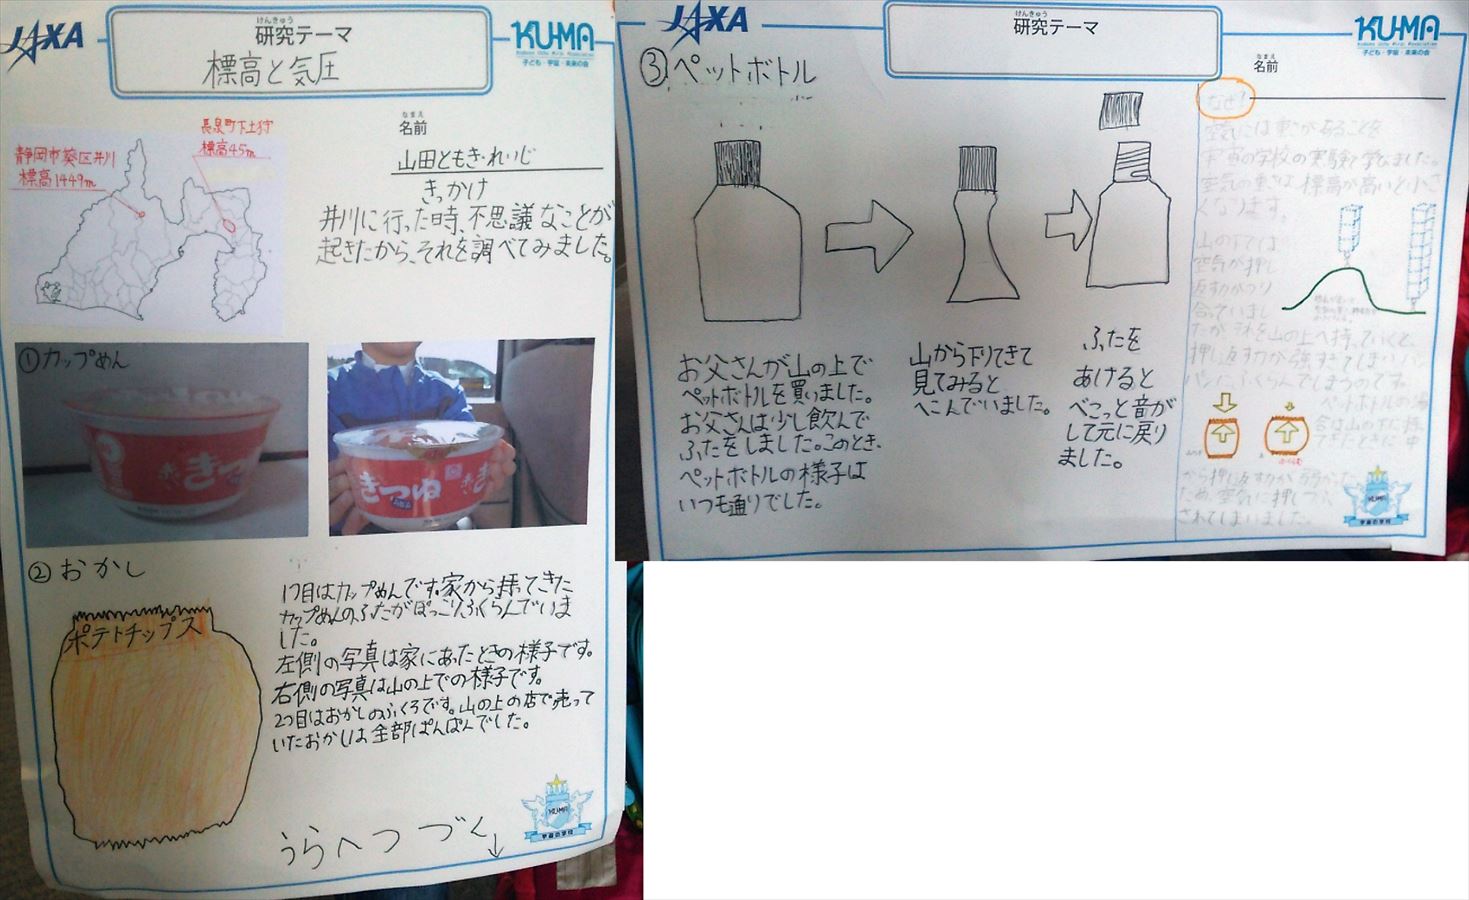 JAXA
けんきゅう
研究テーマ
標高と気圧
KU-MA
子ども・宇宙・未来の会
なまえ
名前
山田ともき・れいじ
長泉町下土狩
標高45m
静岡市葵区井川
標高1449m
きっかけ
井川に行った時、不思議なことが
起きたから、それを調べてみました。
①カップめん
赤いきつね
きつね
②おかし
ポテトチップス
1つ目はカップめんです。家から持ってきた
カップめんのふたがぽっこりふくらんでいま
した。
左側の写真は家にあったときの様子です。
右側の写真は山の上での様子です。
2つ目はおかしのふくろです。山の上の店で売って
いたおかしは全部ぱんぱんでした。
うらへつづく
KU-MA
宇宙の学校
JAXA
けんきゅう
研究テーマ
KU-MA
子ども・宇宙・未来の会
なまえ
名前
③ペットボトル
お父さんが山の上で
ペットボトルを買いました。
お父さんは少し飲んで
ふたをしました。このとき、
ペットボトルの様子は
いつも通りでした。
山から下りてきて
見てみると、
へこんでいました。
ふたを
あけると
べこっと音が
して元に戻り
ました。
なぜ!
空気には重さがあることを
宇宙の学校の実験で学びました。
空気の重さは、標高が高いと小さ
くなります。
山の下では
空気が押し
返す力がつり
合っていまし
たが、それを山の上へ持っていくと、
押し返す力が強すぎてしまいパン
パンにふくらんでしまうのです。
ペットボトルの場
合は山の下に持っ
てきたときに、中
から押し返す力が弱かった
ため、空気に押しつぶ
されてしまいました。
KU-MA
宇宙の学校